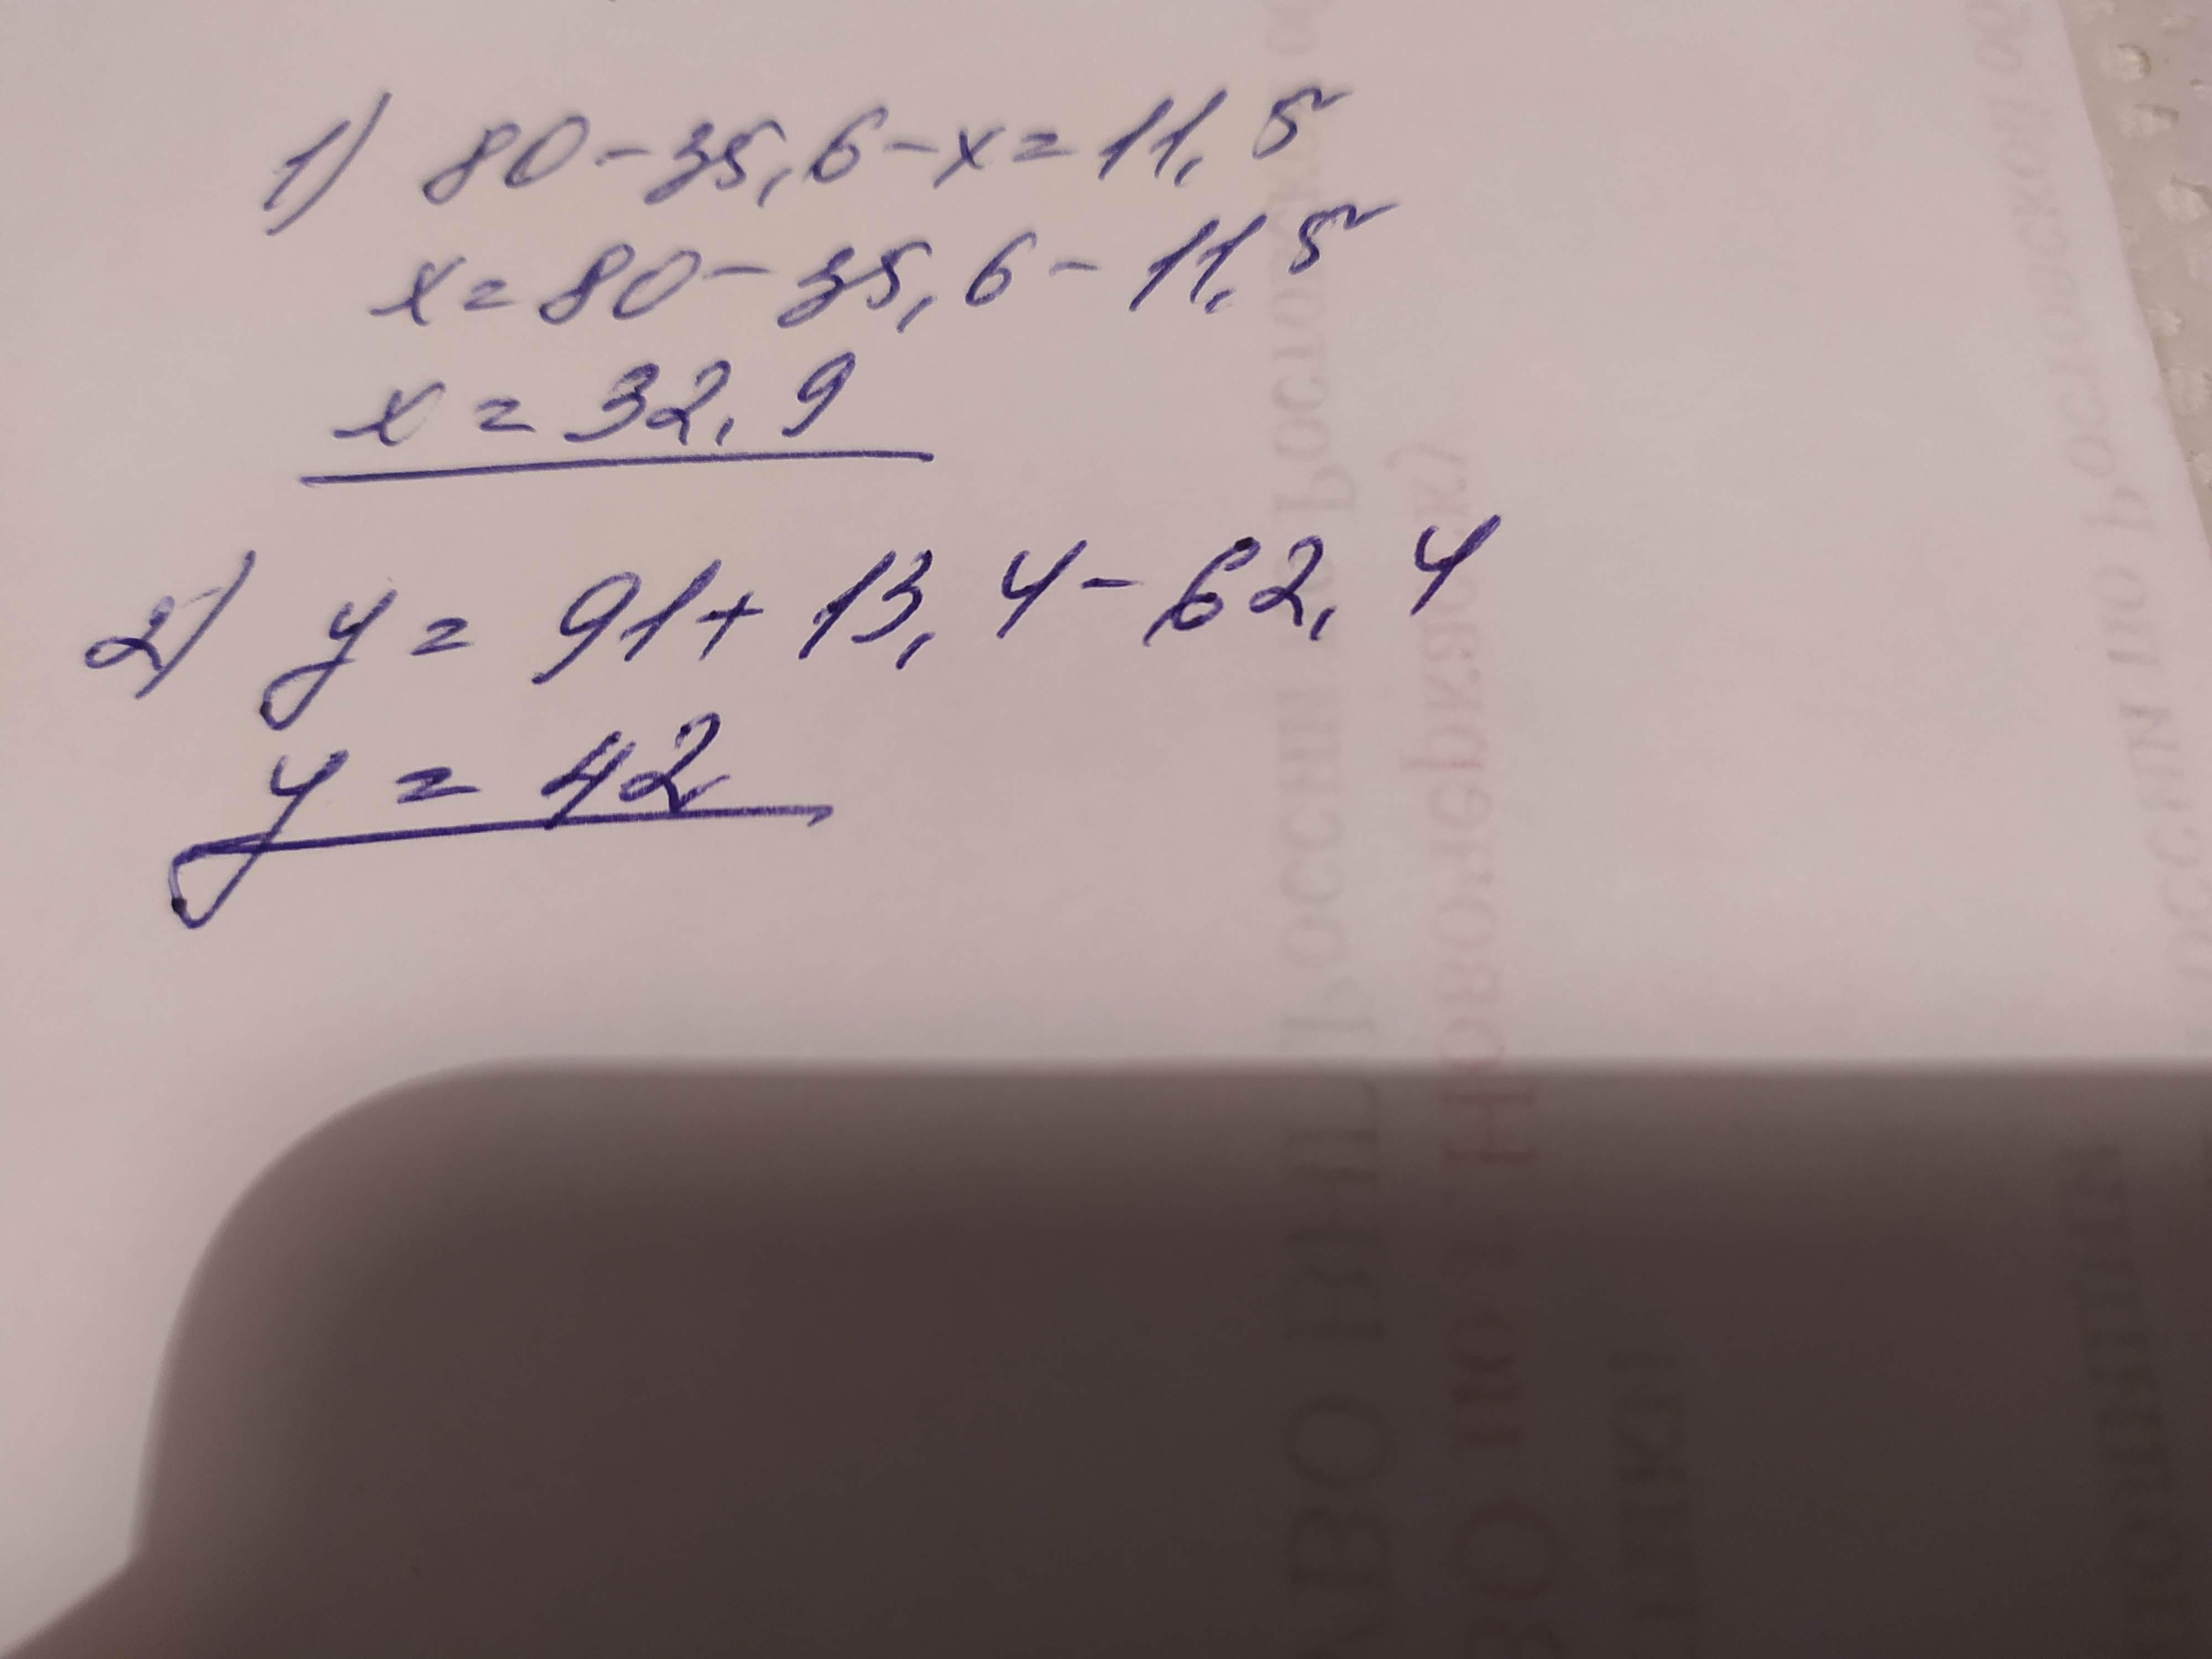 1) 80-35,6-x=11,5
x=80-35,6-11,5
x=32,9
2) y=91+13,4-62,4
y=42